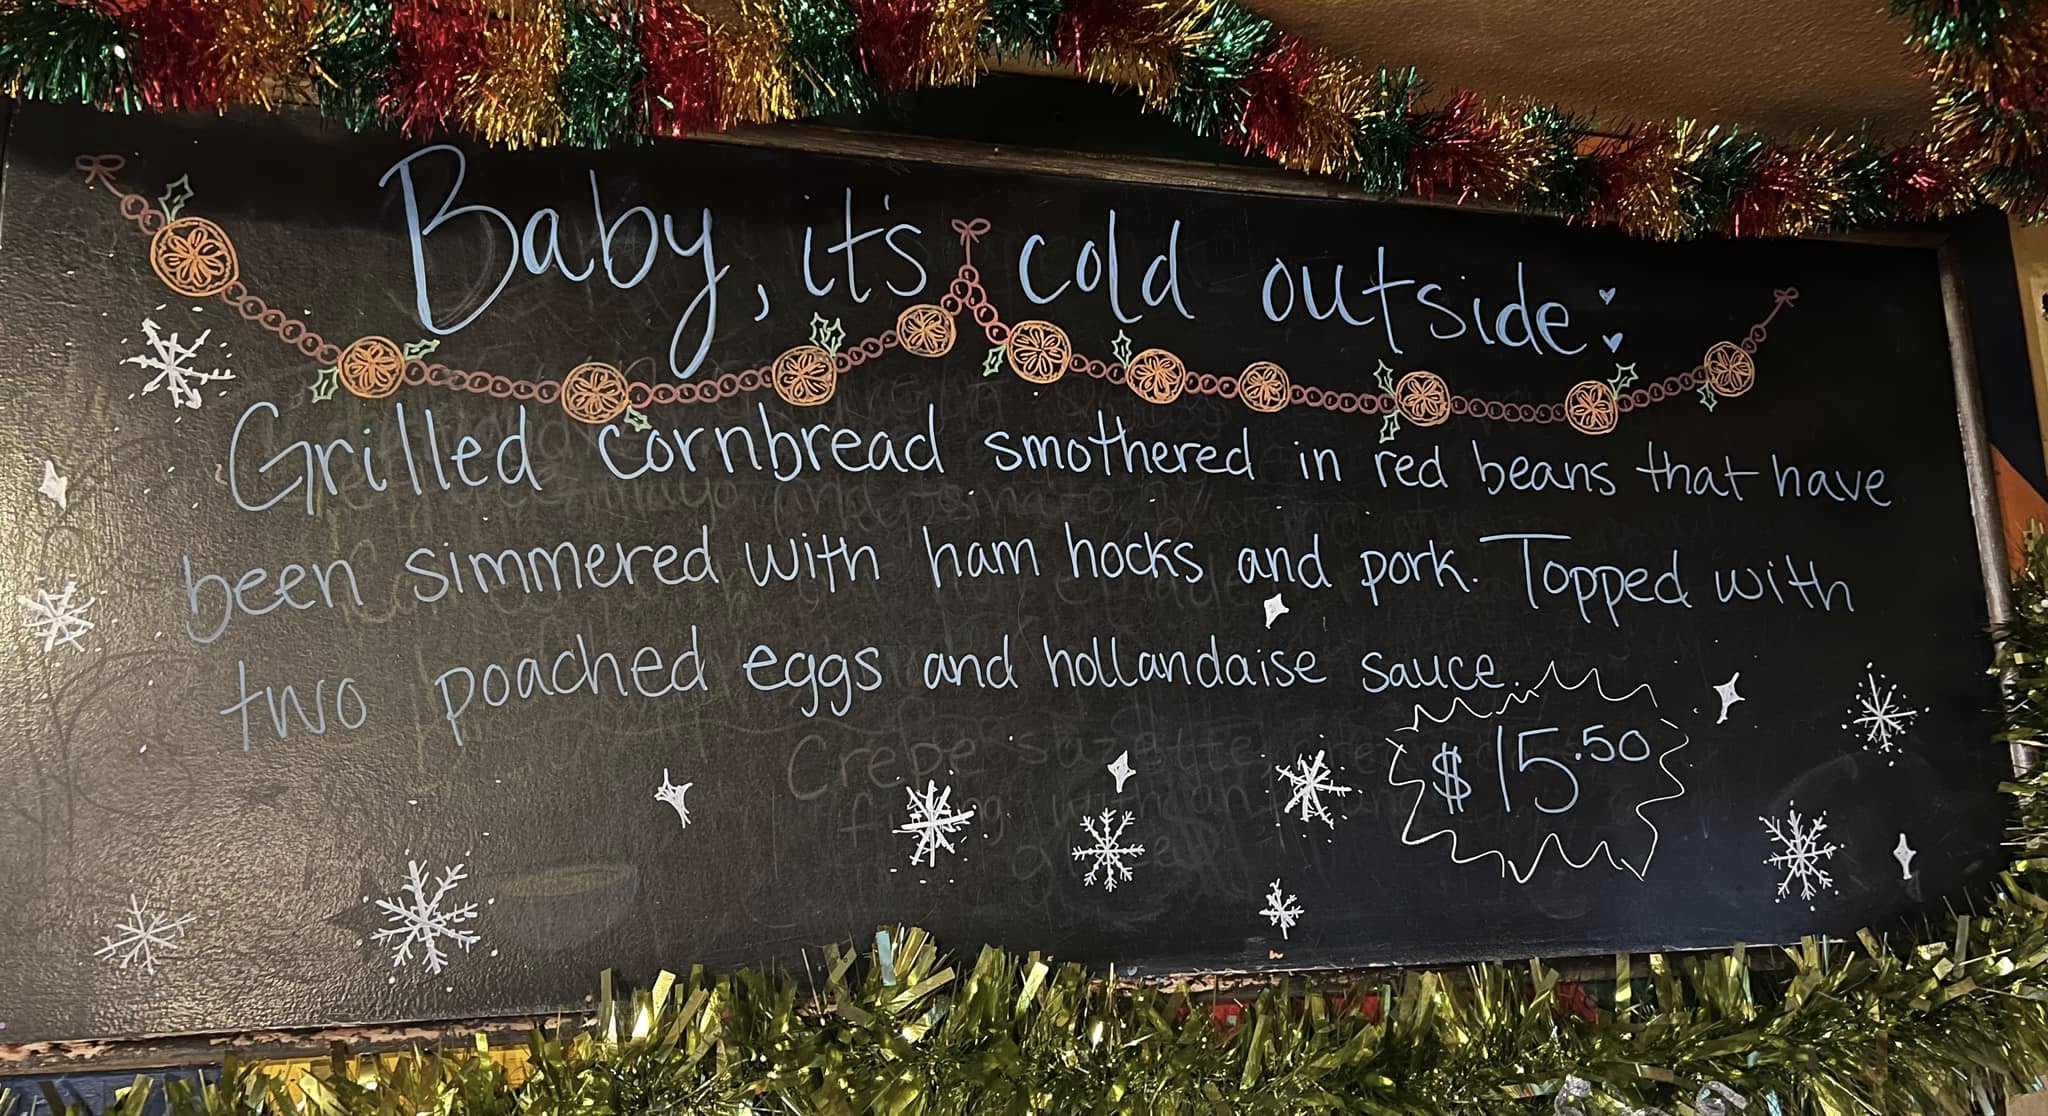 Baby, it's cold outside:
Grilled cornbread smothered in red beans that have
been simmered with ham hocks and pork. Topped with
two poached eggs and hollandaise sauce.
$15.50
Crepe suzette